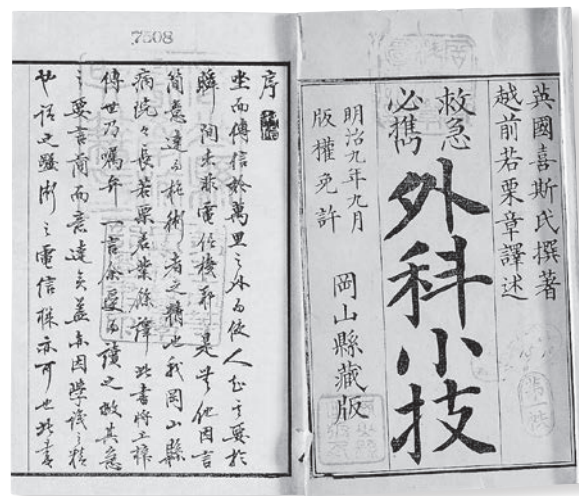 英國喜斯氏撰著
越前若栗章譯述
救急
必携
外科小技
岡山縣藏版
明治九年九月
版權免許
7508
序
坐而傳信於萬里之外而使人知其要於
瞬間者非電信機耶是無他因言
簡意達而施術者之精也我岡山縣
病院々長若栗君業餘譯此書將上梓
傳世乃囑弁一言余受而讀之救其急
之要言簡而意達矣蓋亦因學識之精
也謂之醫術之電信機亦可也此書